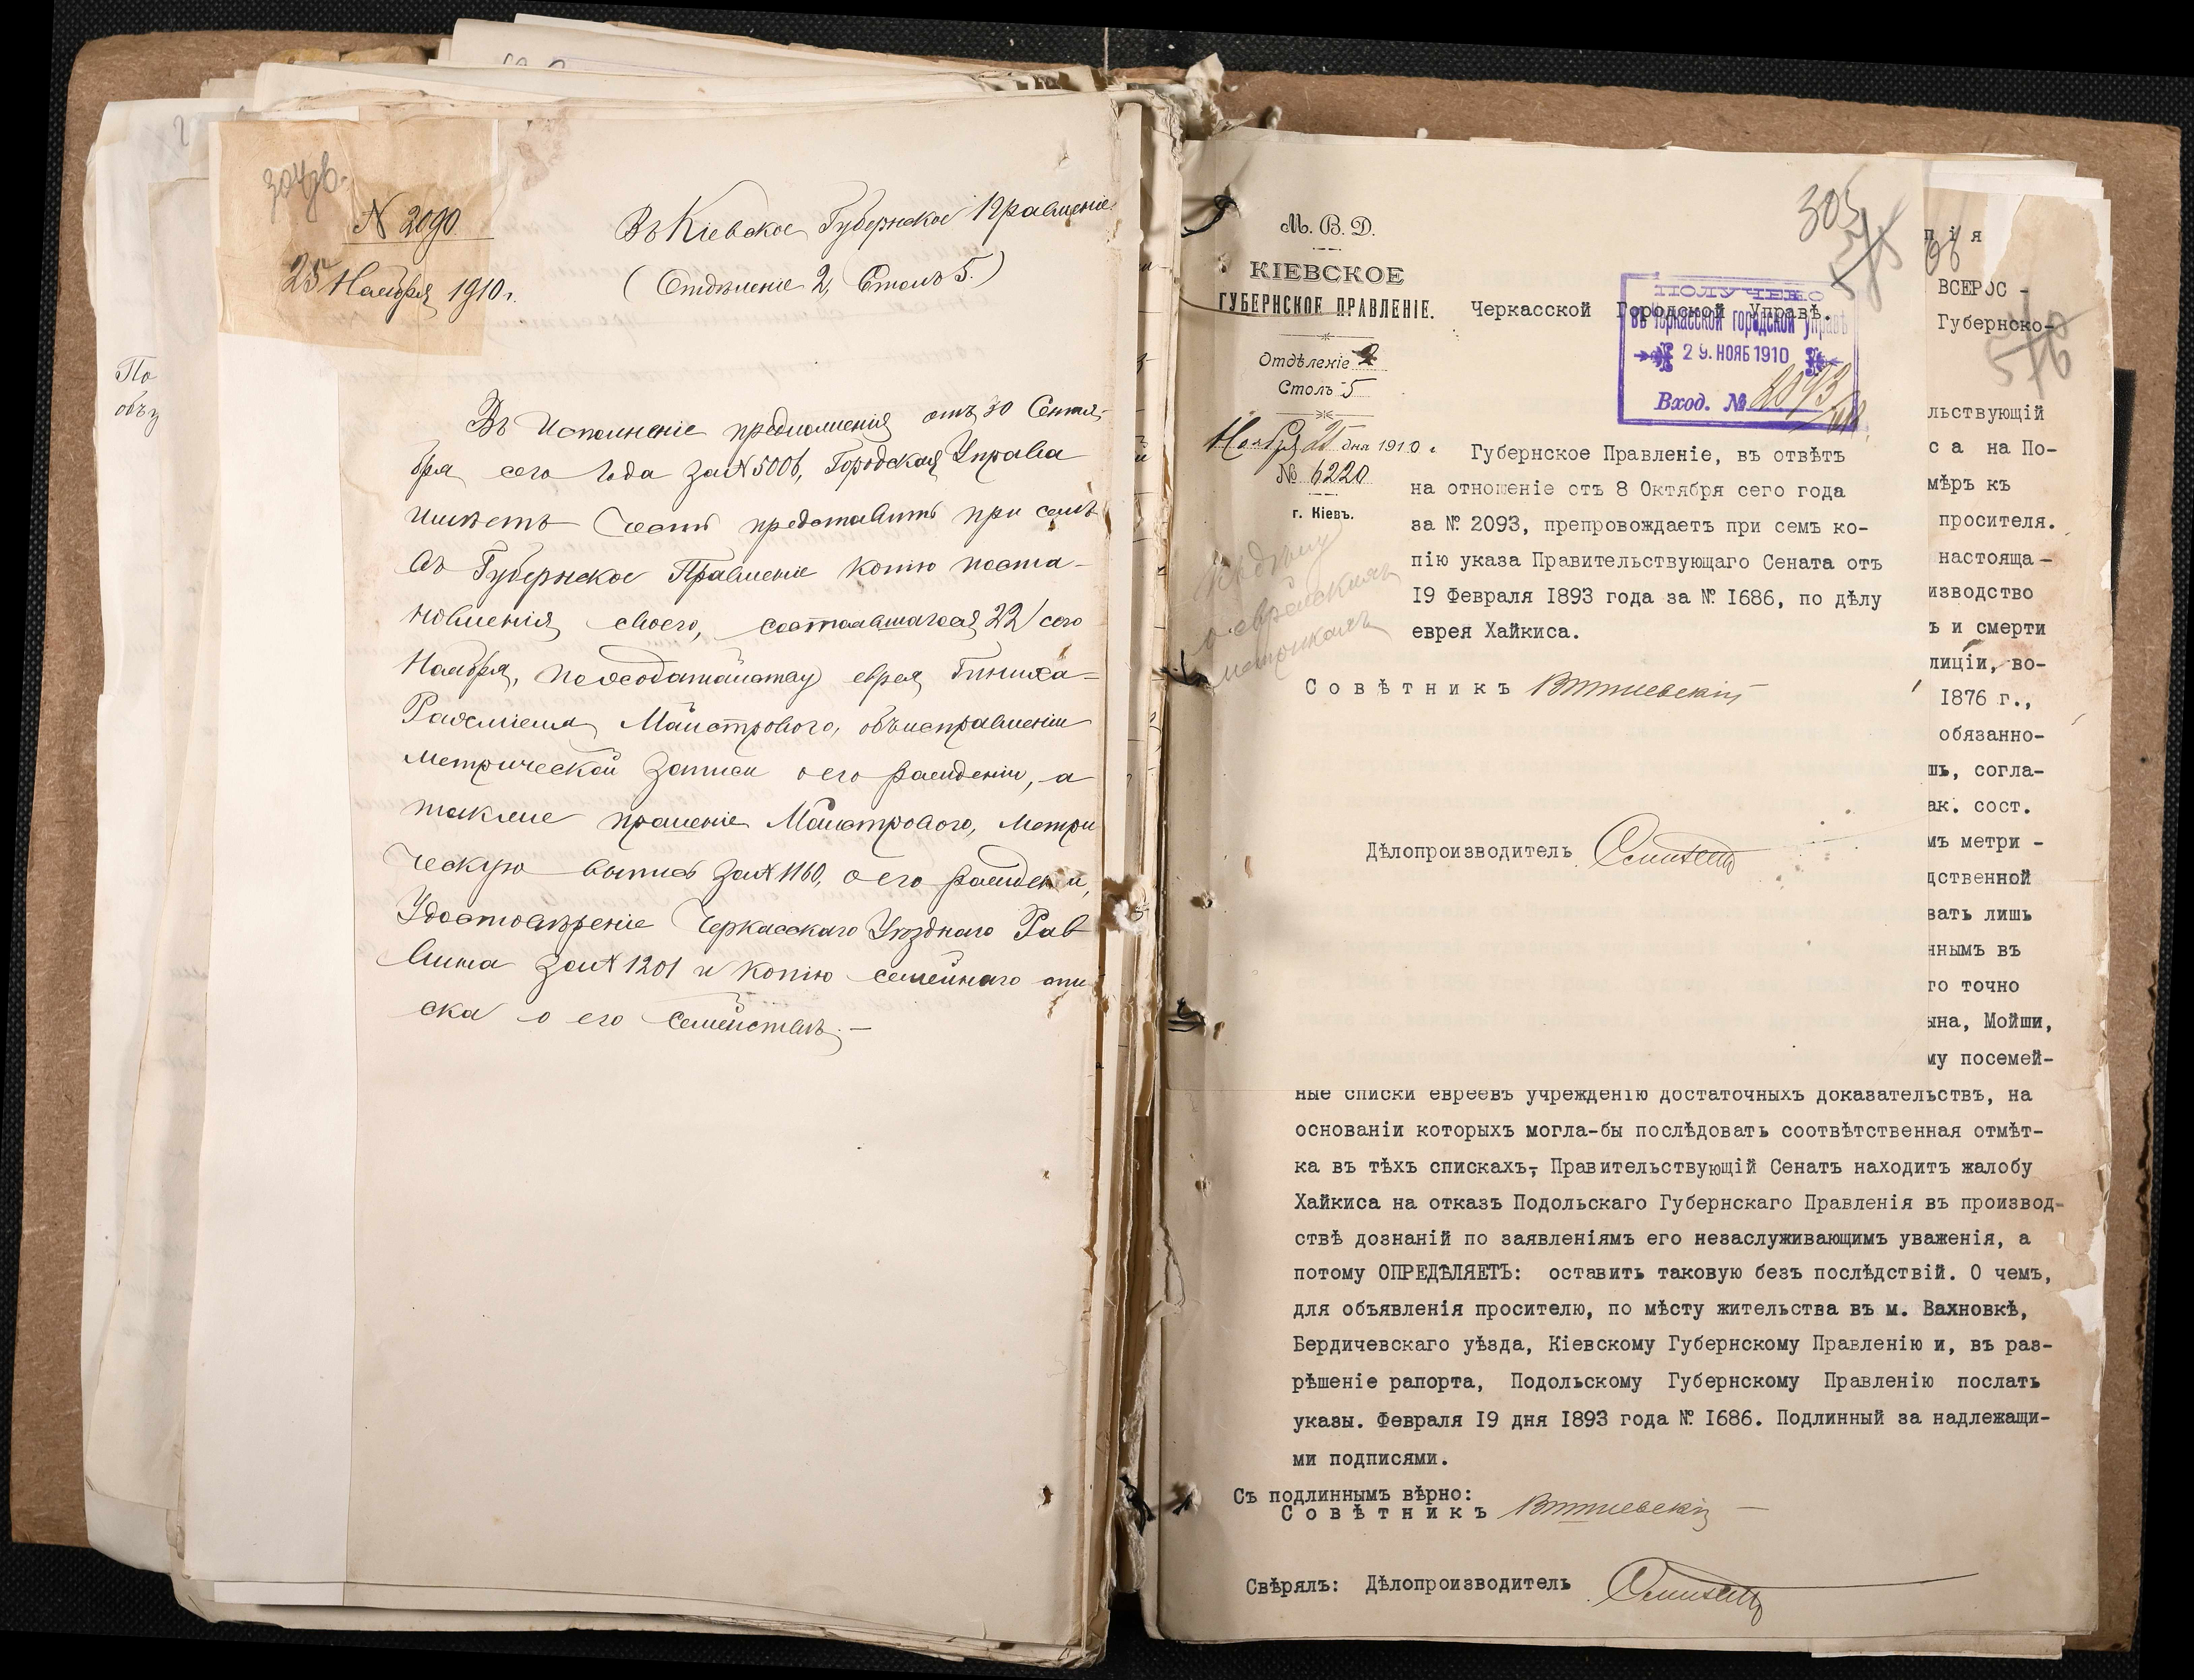 304об.
№ 2090
25 Ноября 1910 г.
Въ Кіевское Губернское Правленіе.
(Отдѣленіе 2, Столъ 5.)
Въ исполненіе предложенія отъ 30 Сентя-
бря сего года за № 5006, Городская Управа
имѣетъ честь представить при семъ
въ Губернское Правленіе копію поста-
новленія своего, состоявшагося 22 сего
Ноября, по ходатайству еврея
Майстрового, объ исправленіи
метрической записи о его рожденіи, а
также прошеніе Майстрового, метри
ческую выпись за № 1160, о его рожденіи,
Удостовѣреніе Черкасскаго Уѣзднаго Рав
вина за № 1201 и копію семейнаго спи
ска о его семействѣ.—
По
объ
М. В. Д.
КІЕВСКОЕ
ГУБЕРНСКОЕ ПРАВЛЕНІЕ.
Отдѣленіе 2
Столъ 5
Ноября 25 дня 1910 г.
№ 6220
г. Кіевъ.
Къ дѣлу
о еврейскихъ
метрикахъ
305
Черкасской Городской Управѣ.
ПОЛУЧЕНО
въ Черкасской городской управѣ
29. НОЯБ 1910
Вход. №
Губернское Правленіе, въ отвѣтъ
на отношеніе отъ 8 Октября сего года
за № 2093, препровождаетъ при семъ ко-
пію указа Правительствующаго Сената отъ
I9 Февраля I893 года за № I686, по дѣлу
еврея Хайкиса.
Совѣтникъ
Дѣлопроизводитель
пія
ВСЕРОС -
Губернско-
576
льствующій
са на По-
мѣръ къ
просителя.
настояща-
изводство
ъ и смерти
лиціи, во-
I876 г.,
обязанно-
шь, согла-
ак. сост.
мъ метри -
дственной
вать лишь
ннымъ въ
го точно
ына, Мойши,
му посемей-
ные списки евреевъ учрежденію достаточныхъ доказательствъ, на
основаніи которыхъ могла-бы послѣдовать соотвѣтственная отмѣт-
ка въ тѣхъ спискахъ, Правительствующій Сенатъ находитъ жалобу
Хайкиса на отказъ Подольскаго Губернскаго Правленія въ производ-
ствѣ дознаній по заявленіямъ его незаслуживающимъ уваженія, а
потому ОПРЕДѢЛЯЕТЪ: оставить таковую безъ послѣдствій. О чемъ,
для объявленія просителю, по мѣсту жительства въ м. Вахновкѣ,
Бердичевскаго уѣзда, Кіевскому Губернскому Правленію и, въ раз-
рѣшеніе рапорта, Подольскому Губернскому Правленію послать
указы. Февраля I9 дня I893 года № I686. Подлинный за надлежащи-
ми подписями.
Съ подлиннымъ вѣрно:
Совѣтникъ
Свѣрялъ: Дѣлопроизводитель